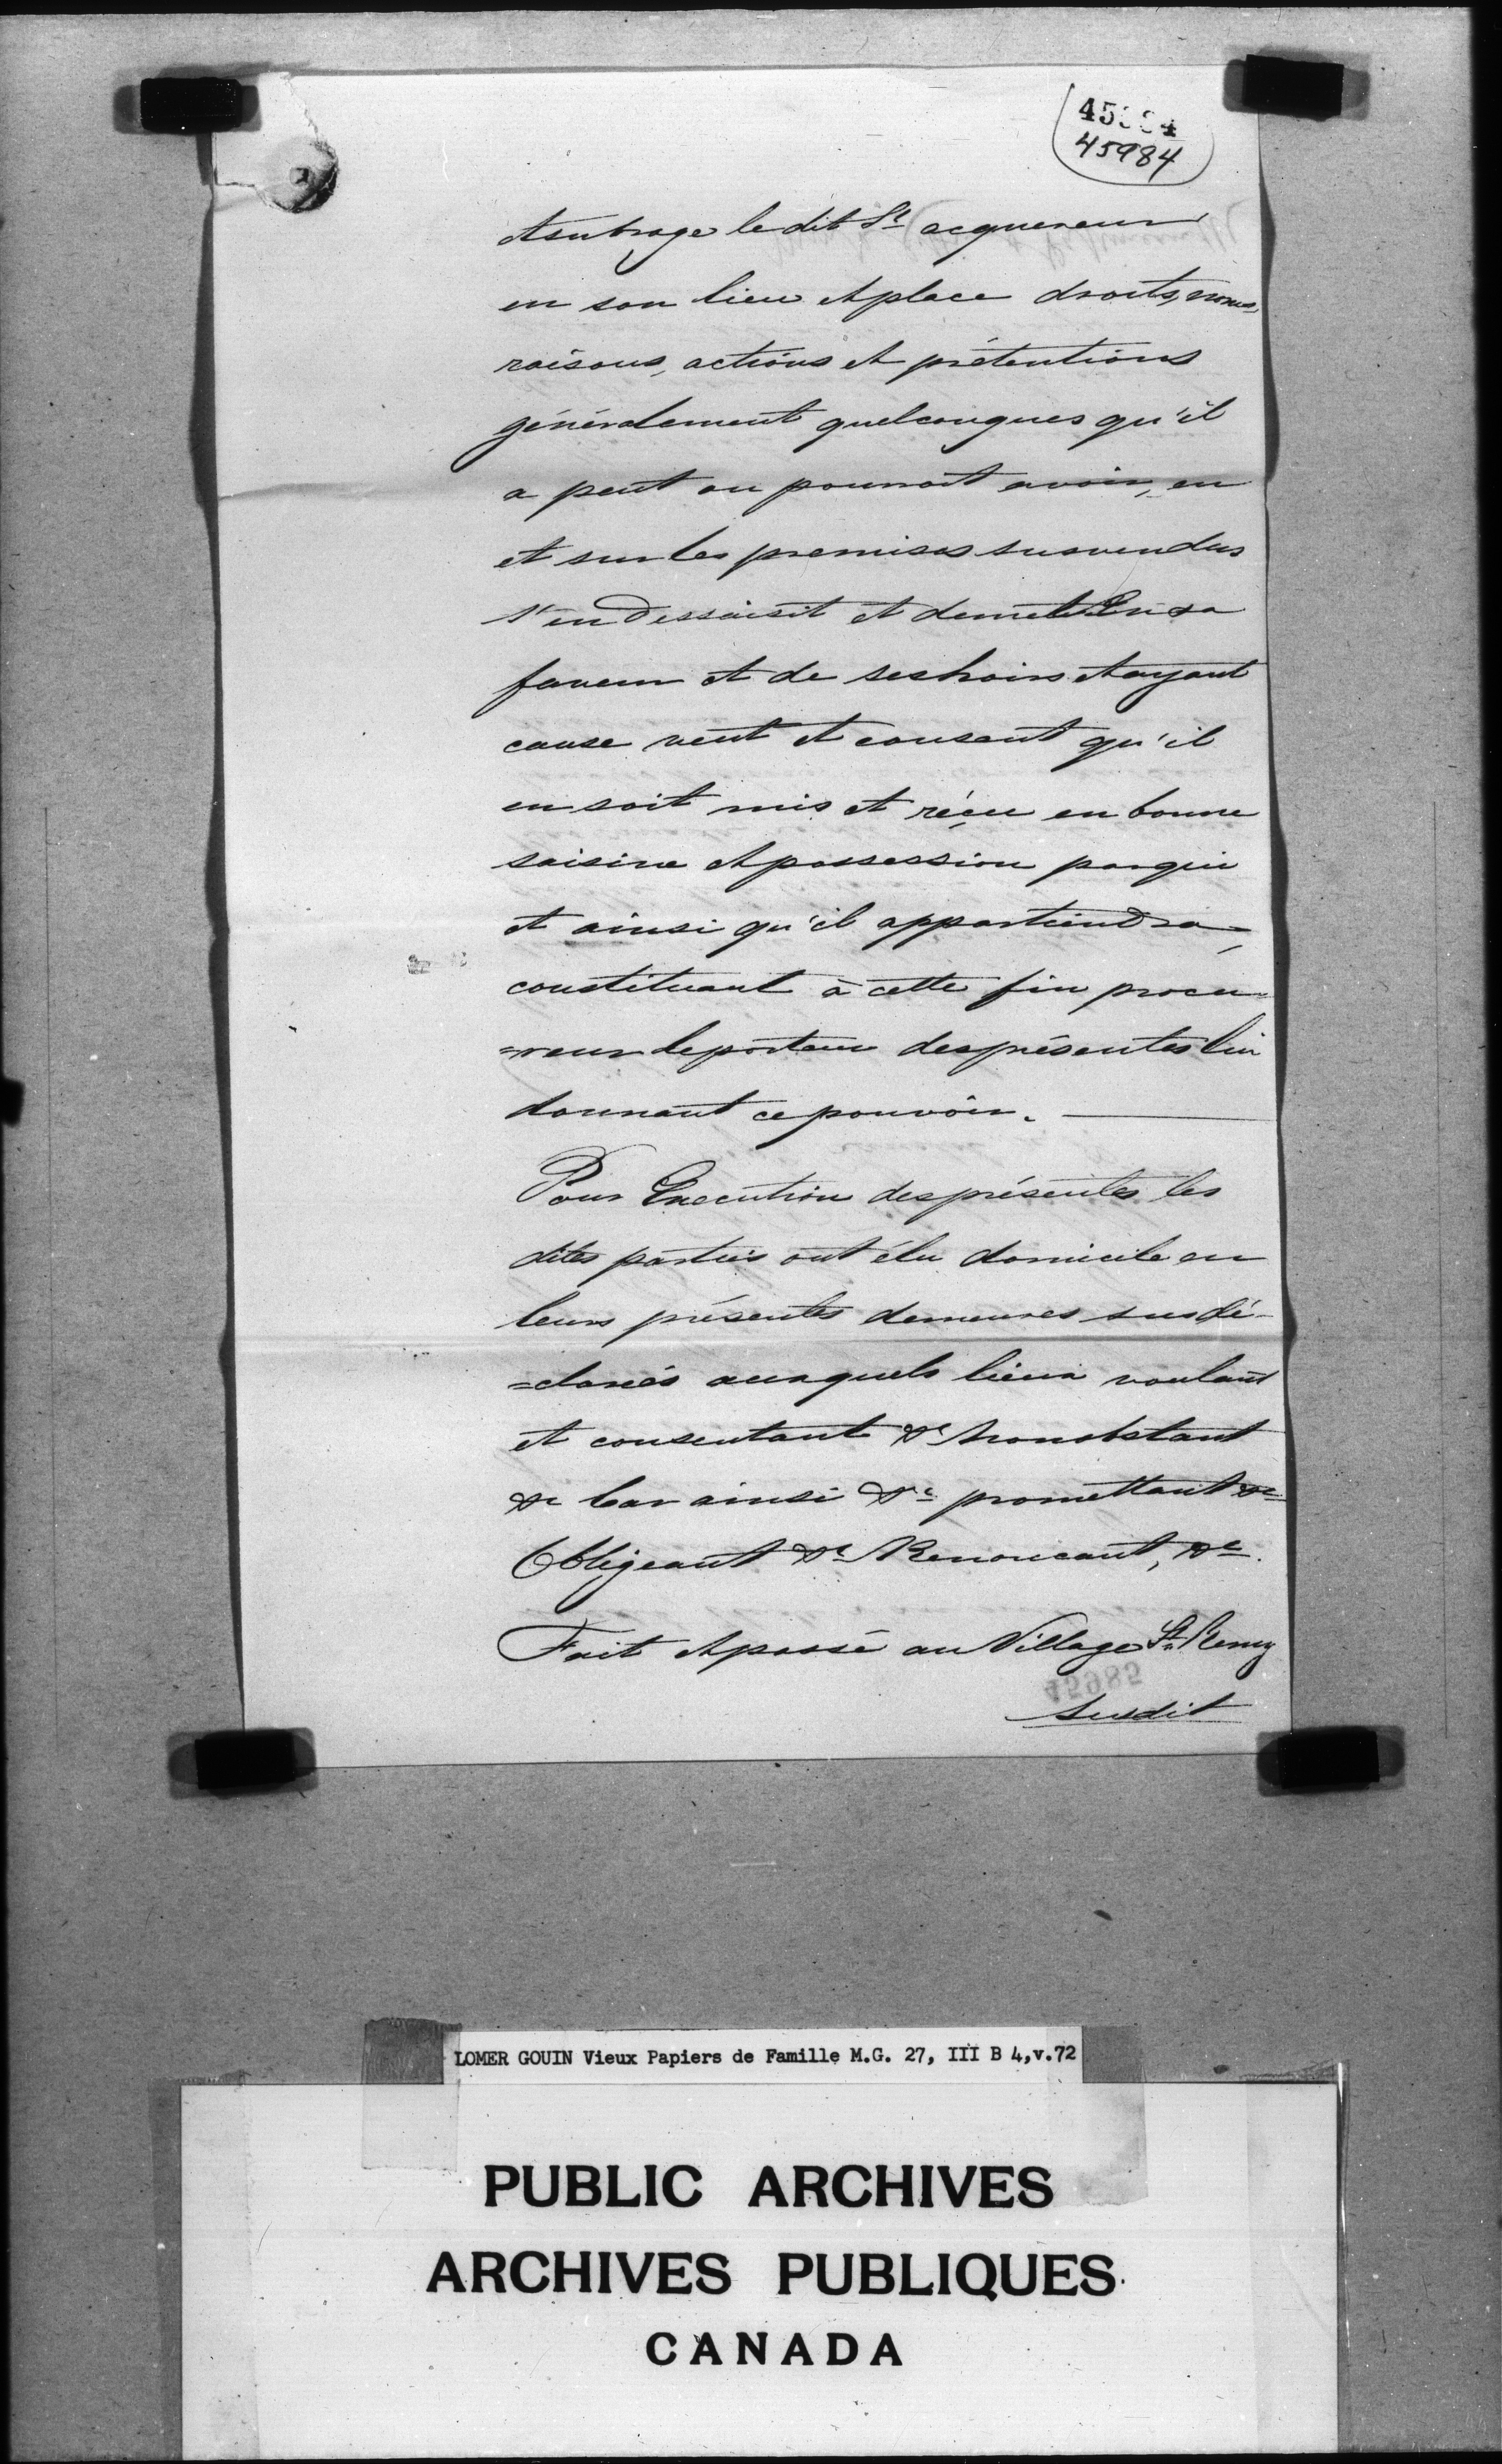 45984
45984
et subroge le dit Sr acquereur
en son lieu et place droits, noms,
raisons, actions et prétentions
généralement quelconques qu'il
a peut ou pourroit avoir, en
et sur les premises susvendus
s'en dessaisit et demet En sa
faveur et de ses hoirs et ayant
cause veut et consent qu'il
en soit mis et réçu en bonne
saisine et possession par qui
et ainsi qu'il appartiendra,
constituant à cette fin procu=
=reur le porteur des présentes lui
donnant ce pouvoir.
Pour Execution des présentes les
dites parties ont élu domicile en
leurs présentes demeures susdé-
=clarés auxquels lieux voulant
et consentant &c nonobstant
&c Car ainsi &c promettant &c
Obligeant &c Renoncant, &c.
Fait et passé au Village St Remy
45985
susdit
LOMER GOUIN Vieux Papiers de Famille M.G. 27, III B 4,v.72
PUBLIC ARCHIVES
ARCHIVES PUBLIQUES
CANADA